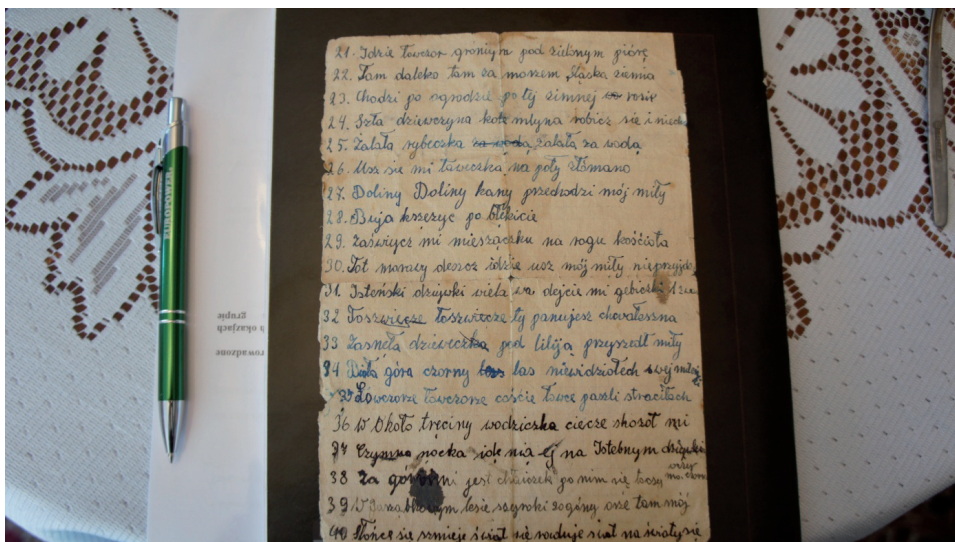 21. Idzie łowczor groniym pod zielónym pióre
22. Tam daleko tam za morzem Śląska ziemia
23. Chodzi po ogrodzie po tej zimnej rosie
24. Szła dziewczyna koło młyna robicz się i
25. Żalała rybeczka za wodą żalała za wodą
26. się mi ławeczka na poły złómano
27. Doliny Doliny kany przechodzi mój miły
28. Buja kszezyc po błekicie
29. Zaświycz mi miesządzku na rogu kościoła
30. Tót maruwy deszcz idzie usz mój miły nieprzyjdz
31. Isteński dziywki wiela wa dejcie mi gebiczki
32 Łoszwiecze łoszwiecze ty panujesz chowateszna
33 Zasneła dzieweczka pod liliją przyszedł miły
34 Biołá góra czorny las niewidziołech swej miłej
35 Łowczorze łowczorze coście łowce paśli straciłach
36 W Około tręciny wodziczka ciecze skoszół mi
37 Czymna nocka idz na Istebnym dziywki
38 Za górómi jest chodniczek po nim się toczy
39 W lesie szyroki goginy orze tam mój
40 Słońce się szmieje świat się raduje
grupie
a okazjach
rowadzone